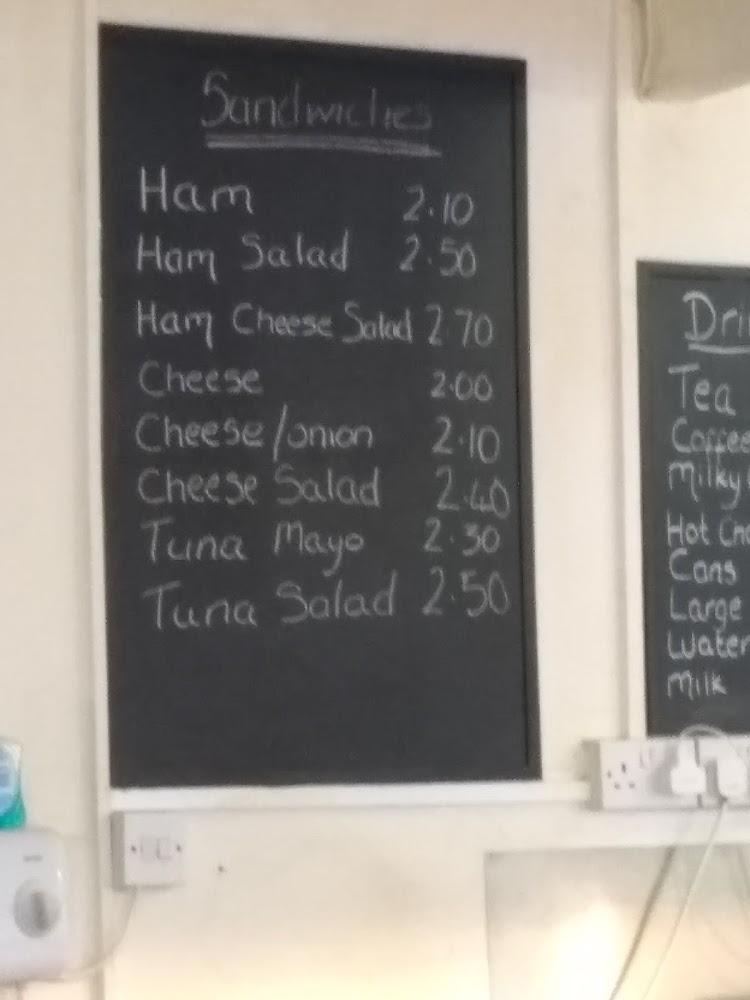 Sandwiches
Ham 2.10
Ham Salad 2.50
Ham Cheese Salad 2.70
Cheese 2.00
Cheese/onion 2.10
Cheese Salad 2.40
Tuna Mayo 2.30
Tuna Salad 2.50
Dri
Tea
Coffee
Milky
Hot Cho
Cans
Large
Water
Milk